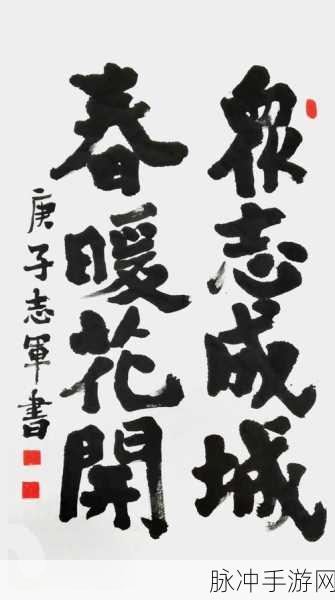 眾志成城
春暖花開
庚子志軍書
脉冲手游网